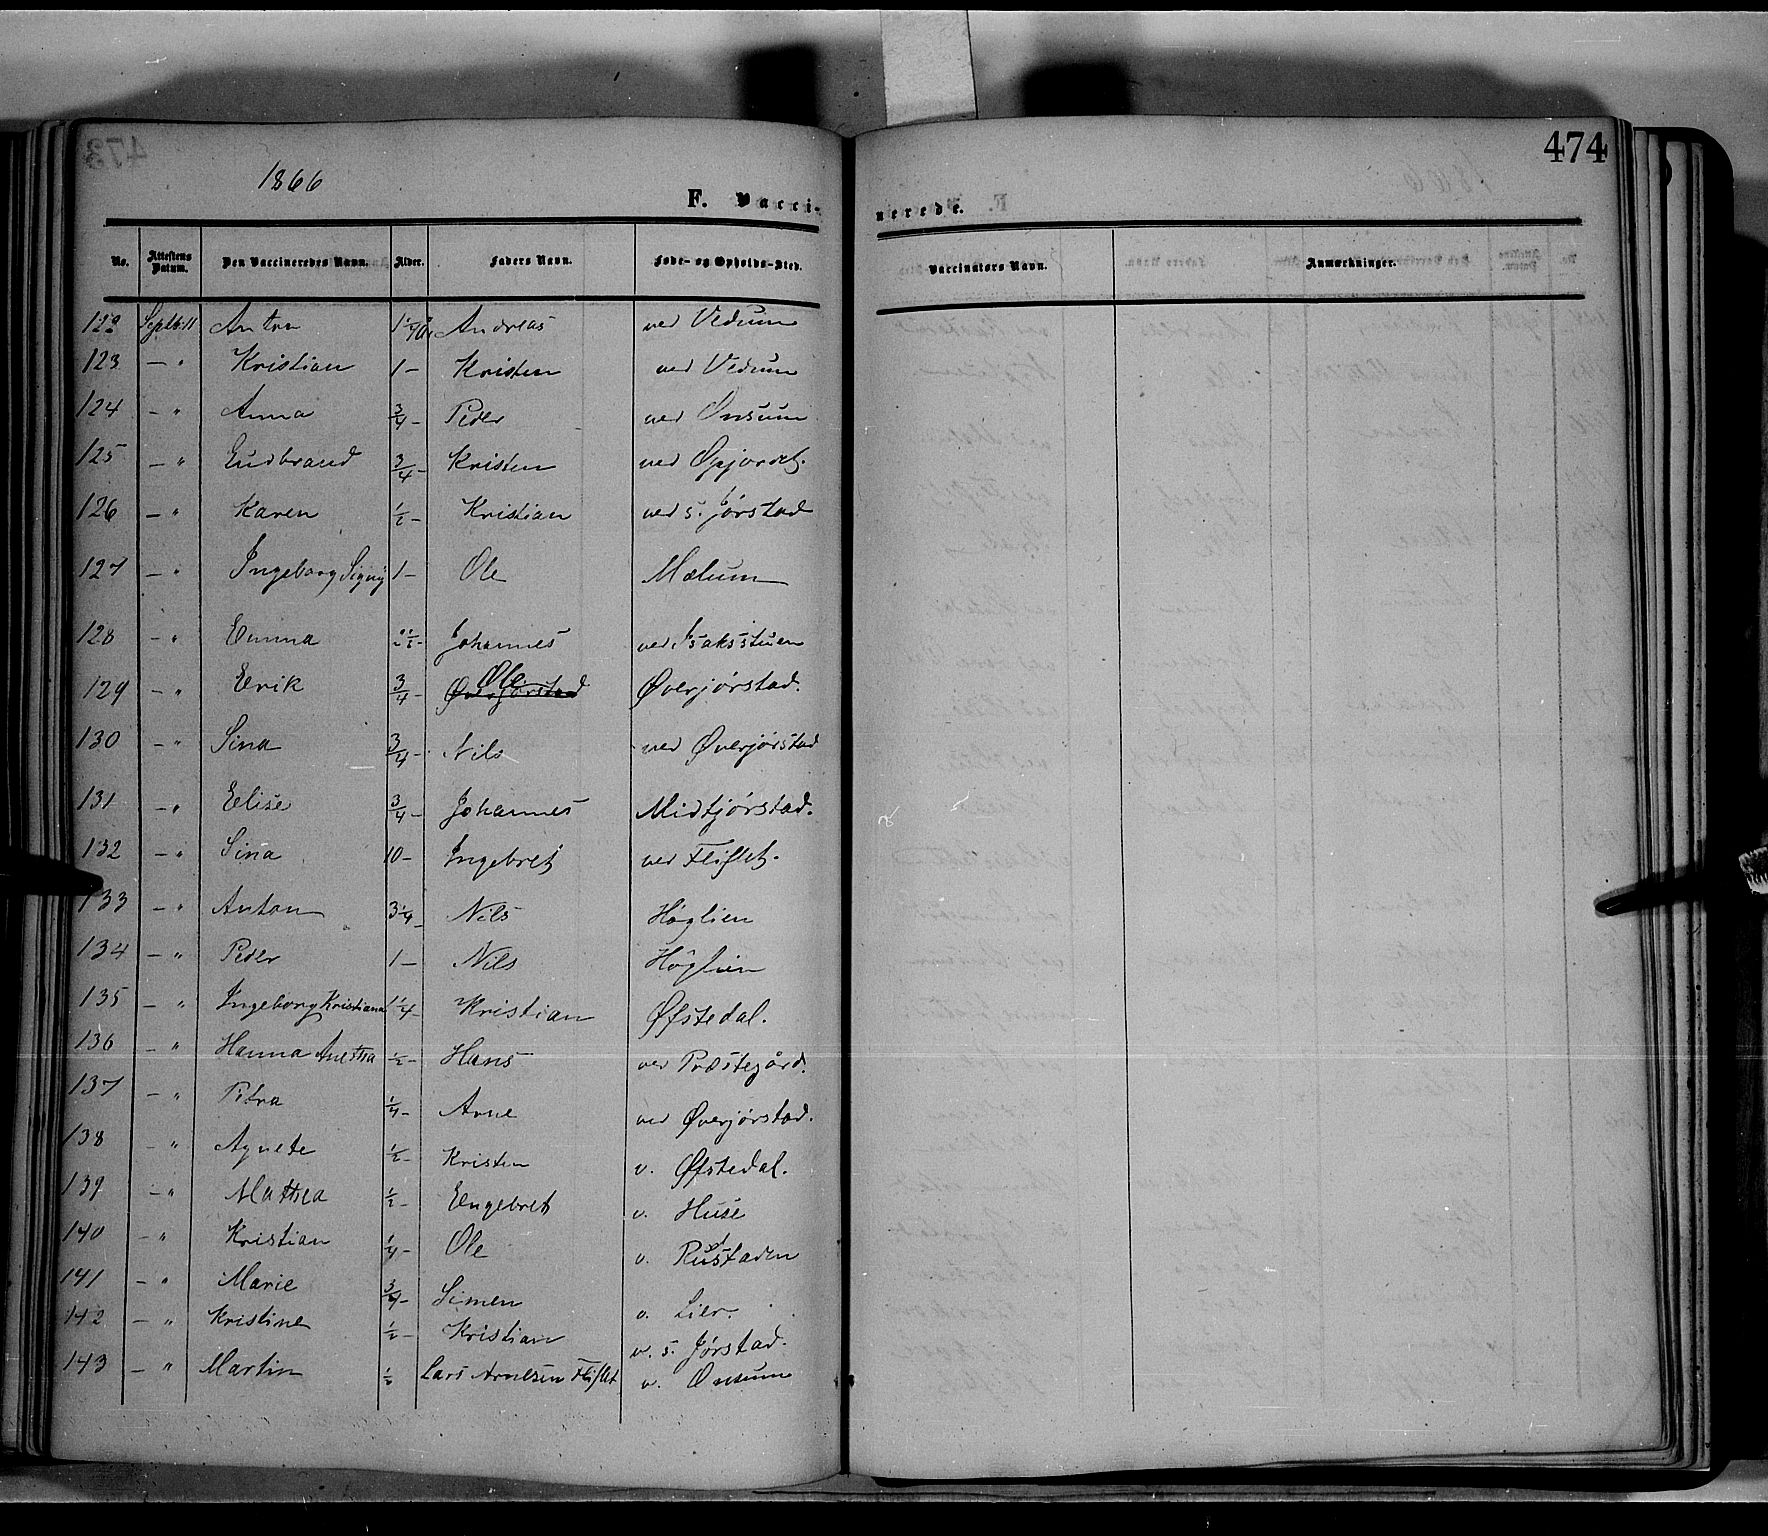 474
1866
F. Vacci-
nerede.
No. Attestens Datum. Den Vaccineredes Navn. Alder. Faders Navn. Føde- og Opholds-Sted. Vaccinators Navn. Anmærkninger.
122 Septb 11 Anton Andreas ved Vedum
123 — " Kristian 1 — Kristen ved Vedum
124 — " Anna 3/4 — Peder ved Onsum
125 — " Gudbrand 3/4 — Kristen ved Opjordet.
126 — " Karen 1/2 — Kristian ved s. Jørstad
127 — " Ingeborg Signy 1 — Ole Mælum
128 — " Emma 2 1/2 — Johannes ved Isaksstuen
129 — " Erik 3/4 — Ole Øverjørstad Øverjørstad.
130 — " Sina 3/4 — Nils ved Øverjørstad
131 — " Elise 3/4 — Johannes Midtjørstad.
132 — " Sina 10 — Ingebret ved Fliflet.
133 — " Anton 3 1/4 — Nils Høglien
134 — " Peder 1 — Nils Høglien
135 — " Ingeborg Kristiana 1 1/4 — Kristian Øfstedal.
136 — " Hanna Anettha 1/2 — Hans ved Præstegård.
137 — " Petra 1/4 — Arne ved Øverjørstad.
138 — " Agnete 1/2 — Kristen v. Øfstedal.
139 — " Mathea 1/2 — Engebret v. Huse
140 — " Kristian 1/4 — Ole v. Rustaden
141 — " Marie 3/4 — Simen v. Lier.
142 — " Kristine 1/2 — Kristian v. s. Jørstad.
143 — " Martin 1/2 Lars Arnesen Fliflet v. Onsum